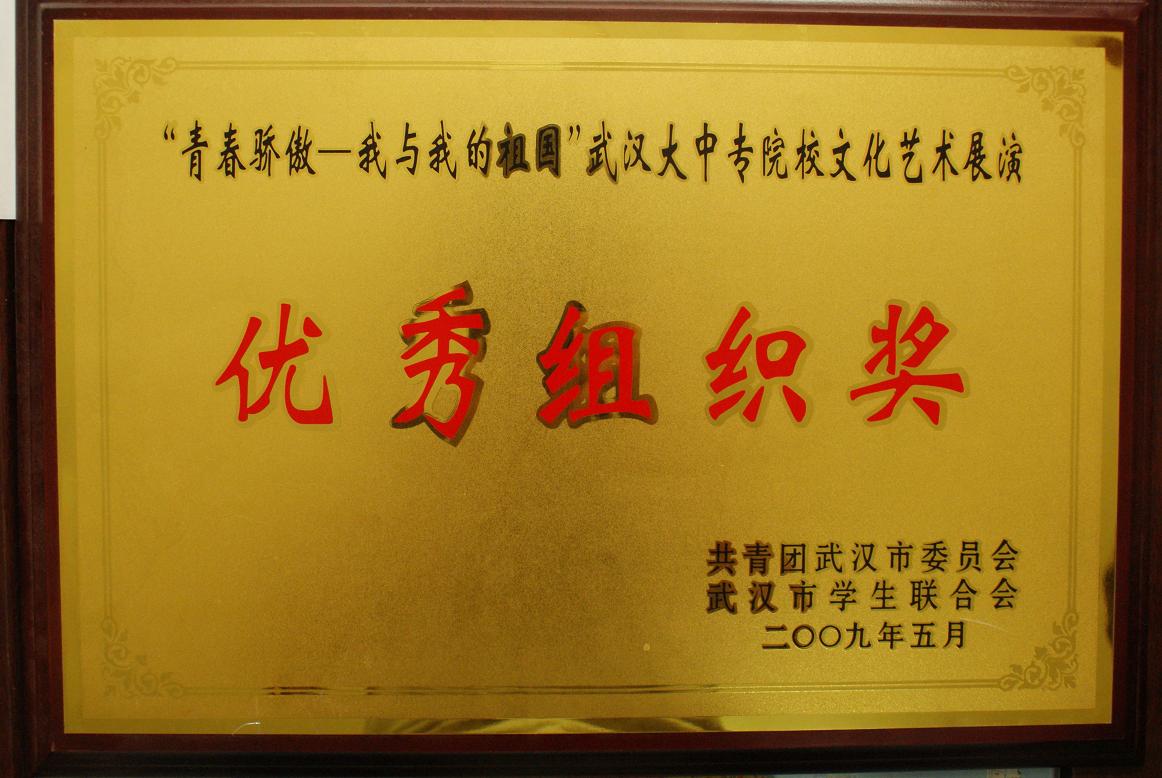 “青春骄傲—我与我的祖国”武汉大中专院校文化艺术展演
优秀组织奖
共青团武汉市委员会
武汉市学生联合会
二〇〇九年五月